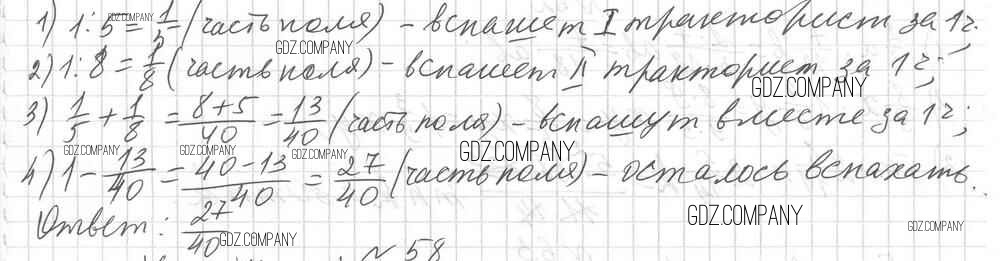 1) 1:5=1/5 (часть поля) – вспашет I тракторист за 1ч.
2) 1:8=1/8 (часть поля) – вспашет II тракторист за 1ч;
3) 1/5+1/8=8+5/40=13/40 (часть поля) – вспашут вместе за 1ч;
4) 1-13/40=40-13/40=27/40 (часть поля) – осталось вспахать.
Ответ: 27/40
№58
GDZ.COMPANY
GDZ.COMPANY
GDZ.COMPANY
GDZ.COMPANY
GDZ.COMPANY
GDZ.COMPANY
GDZ.COMPANY
GDZ.COMPANY
GDZ.COMPANY
GDZ.COMPANY